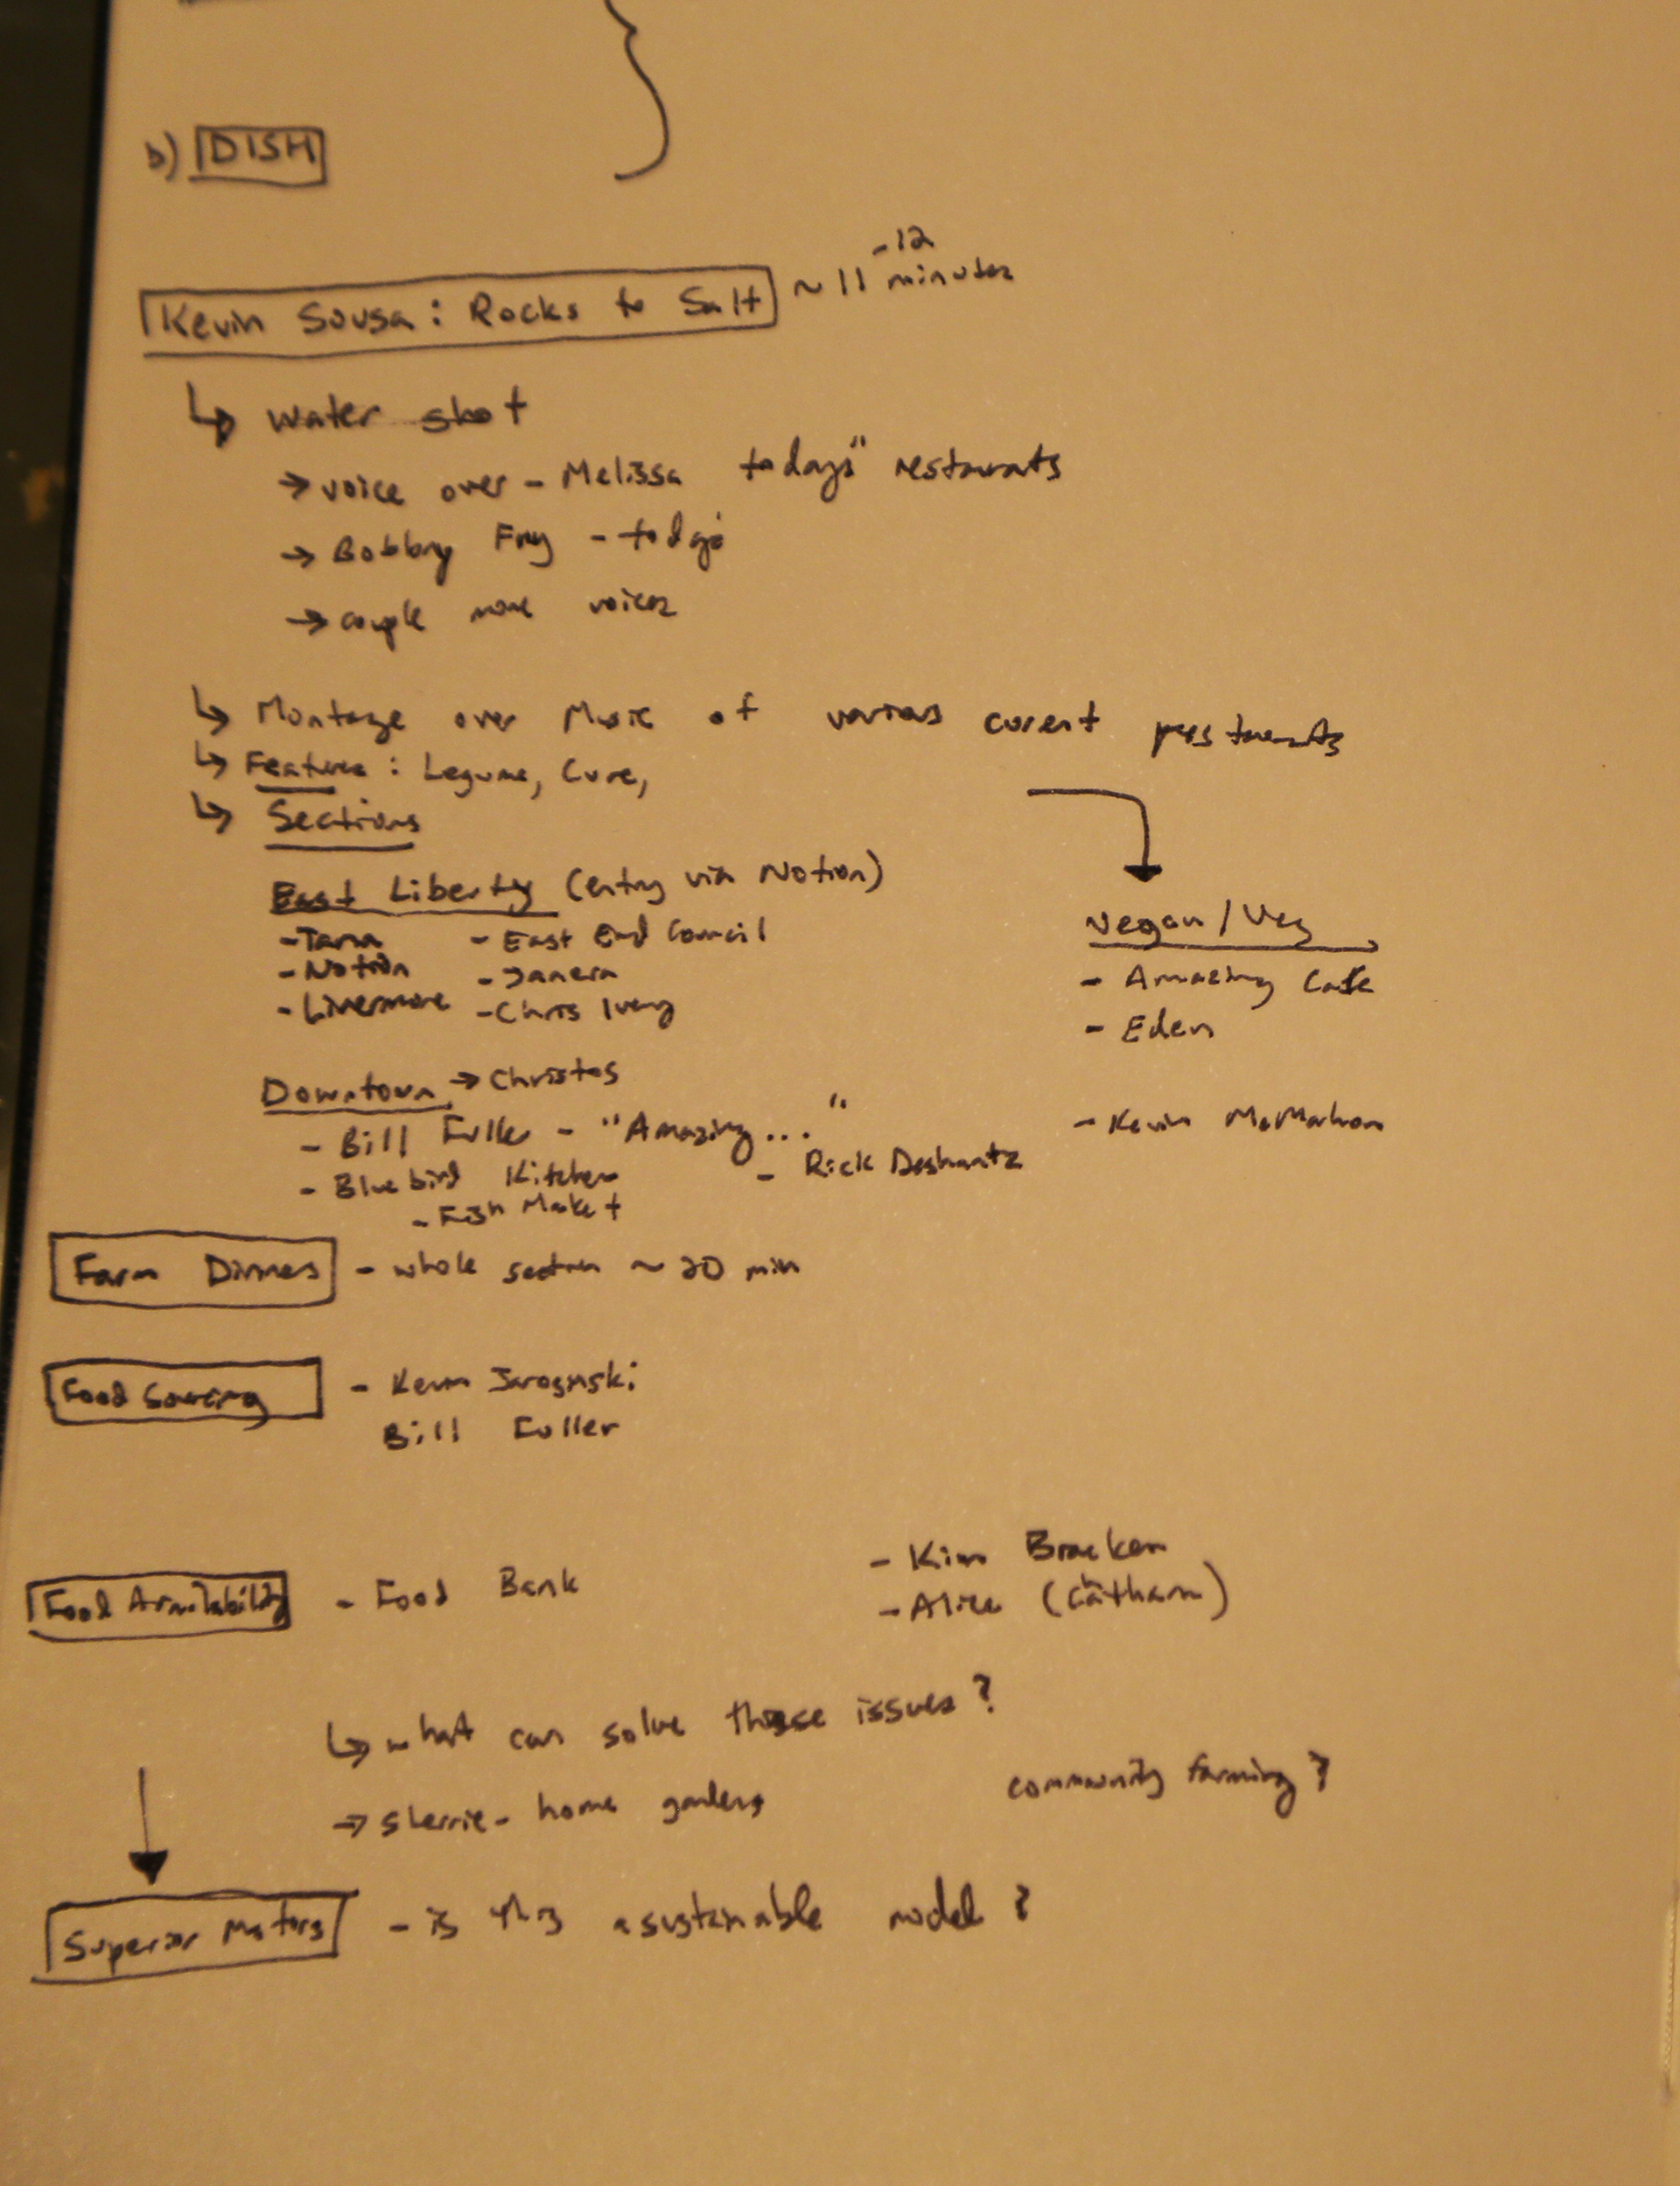 b) DISH
-12
Kevin Sousa: Rocks to Salt ~ 11 minutes
↳ Water shot
→ voice over - Melissa today's" restaurants
→ Bobby Fry - today's
→ couple more voices
↳ Montage over Music of various curent restaurants
↳ Features: Legume, Cure,
↳ Sections
East Liberty (entry via Notion)
- Tana - East End Council
- Notion - Janera
- Livermore - Chris Ivey
Vegan/Veg
- Amazing Cafe
- Eden
Downtown → Christos
- Bill Fuller - "Amazing..."
- Kevin McMahon
- Bluebird Kitchen - Rick Deshantz
- Fish Market
Farm Dinners - whole section ~ 20 min
Food Sourcing - Kevin
Bill Fuller
- Kim Bracken
Food Availability - Food Bank
- Alice (Chatham)
↳ what can solve these issues?
→ Sherrie - home gardens community farming?
Superior Motors - is this a sustainable model?